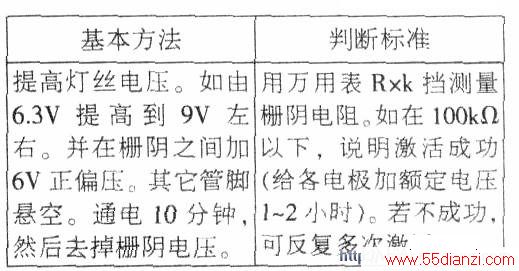 基本方法
判断标准
提高灯丝电压。如由
6.3V 提高到 9V 左
右。并在栅阴之间加
6V 正偏压。其它管脚
悬空。通电 10 分钟,
然后去掉栅阴电压。
用万用表 R×k 挡测量
栅阴电阻。如在 100kΩ
以下，说明激活成功
(给各电极加额定电压
1~2 小时)。若不成功,
可反复多次激
www.55dianzi.com